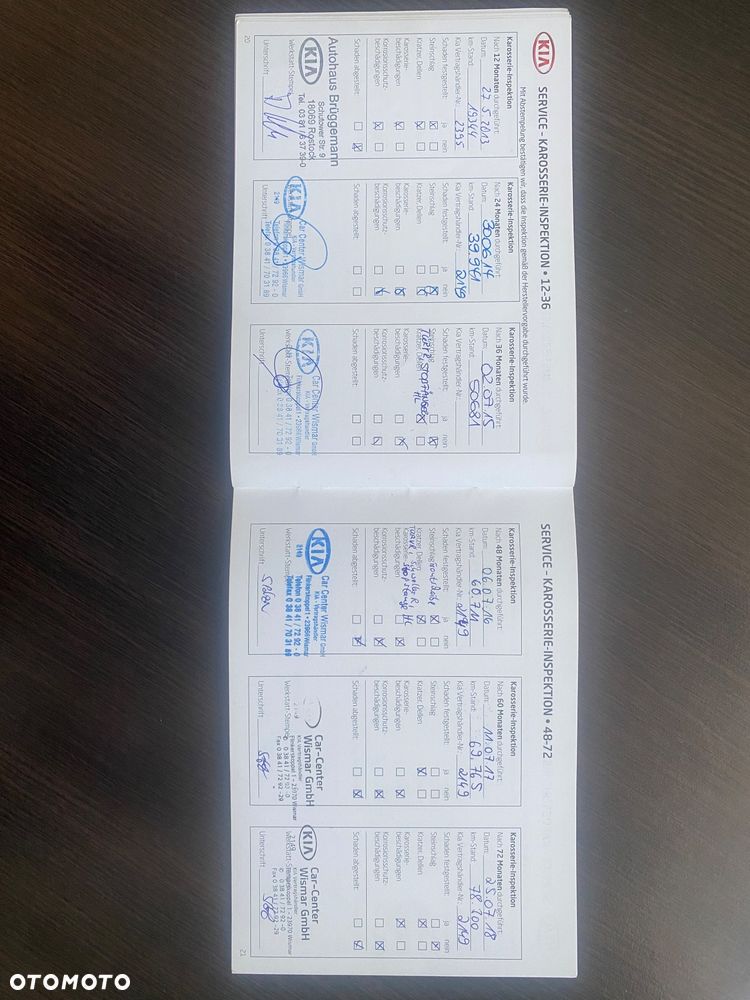 KIA
SERVICE - KAROSSERIE-INSPEKTION • 12-36
Mit Abstempelung bestätigen wir, dass die Inspektion gemäß der Herstellervorgabe durchgeführt wurde.
Karosserie-Inspektion
Nach 12 Monaten durchgeführt:
Datum: 27.5.2013
km-Stand: 19344
Kia Vertragshändler-Nr.: 2395
Schaden festgestellt: ja nein
Steinschlag
Kratzer, Dellen
Karosserie-
beschädigungen
Korrosionsschutz-
beschädigungen
Schaden abgestellt:
Autohaus Brüggemann
KIA
Schutower Str. 9
18069 Rostock
Tel. 03 81 / 6 37 39-0
Werkstatt-Stempel
Unterschrift:
20
Karosserie-Inspektion
Nach 24 Monaten durchgeführt:
Datum: 300614
km-Stand: 39.991
Kia Vertragshändler-Nr.: 2149
Schaden festgestellt: ja nein
Steinschlag
Kratzer, Dellen
Karosserie-
beschädigungen
Korrosionsschutz-
beschädigungen
Schaden abgestellt:
KIA
Car Center Wismar GmbH
KIA - Vertragshändler
23966 Wismar
2149
Telefon 0 38 41 / 72 92 - 0
Telefax 0 38 41 / 70 31 89
Unterschrift:
Karosserie-Inspektion
Nach 36 Monaten durchgeführt:
Datum: 02.07.15
km-Stand: 50681
Kia Vertragshändler-Nr.:
Schaden festgestellt: ja nein
Kratzer, Dellen
HL
Karosserie-
beschädigungen
Korrosionsschutz-
beschädigungen
Schaden abgestellt:
KIA
Car Center Wismar GmbH
KIA - Vertragshändler
Flinkerskoppel 1 • 23966 Wismar
0 38 41 / 72 92 - 0
0 38 41 / 70 31 89
Werkstatt-Stempel
Unterschrift:
SERVICE - KAROSSERIE-INSPEKTION • 48-72
Karosserie-Inspektion
Nach 48 Monaten durchgeführt:
Datum: 06.07.16
km-Stand: 60.711
Kia Vertragshändler-Nr.: 2149
Schaden festgestellt: ja nein
Steinschlag
Kratzer, Dellen
Karosserie-
HL
beschädigungen
Korrosionsschutz-
beschädigungen
Schaden abgestellt:
KIA
Car Center Wismar GmbH
KIA - Vertragshändler
Flinkerskoppel 1 • 23966 Wismar
2149
Telefon 0 38 41 / 72 92 - 0
Telefax 0 38 41 / 70 31 89
Werkstatt-Stempel
Unterschrift:
Karosserie-Inspektion
Nach 60 Monaten durchgeführt:
Datum: 11.07.17
km-Stand: 69.765
Kia Vertragshändler-Nr.: 2149
Schaden festgestellt: ja nein
Steinschlag
Kratzer, Dellen
Karosserie-
beschädigungen
Korrosionsschutz-
beschädigungen
Schaden abgestellt:
Car-Center
Wismar GmbH
KIA Vertragshändler
Flinkerskoppel 1 • 23970 Wismar
0 38 41 / 72 92 -0
Fax 0 38 41 / 72 92 -29
Werkstatt-Stempel
Unterschrift:
Karosserie-Inspektion
Nach 72 Monaten durchgeführt:
Datum: 25.07.18
km-Stand: 78.200
Kia Vertragshändler-Nr.: 2149
Schaden festgestellt: ja nein
Steinschlag
Kratzer, Dellen
Karosserie-
beschädigungen
Korrosionsschutz-
beschädigungen
Schaden abgestellt:
KIA
2149
Car-Center
Wismar GmbH
KIA Vertragshändler
Flinkerskoppel 1 • 23970 Wismar
0 38 41 / 72 92 -0
Fax 0 38 41 / 72 92 -29
Werkstatt-Stempel
Unterschrift:
21
OTOMOTO